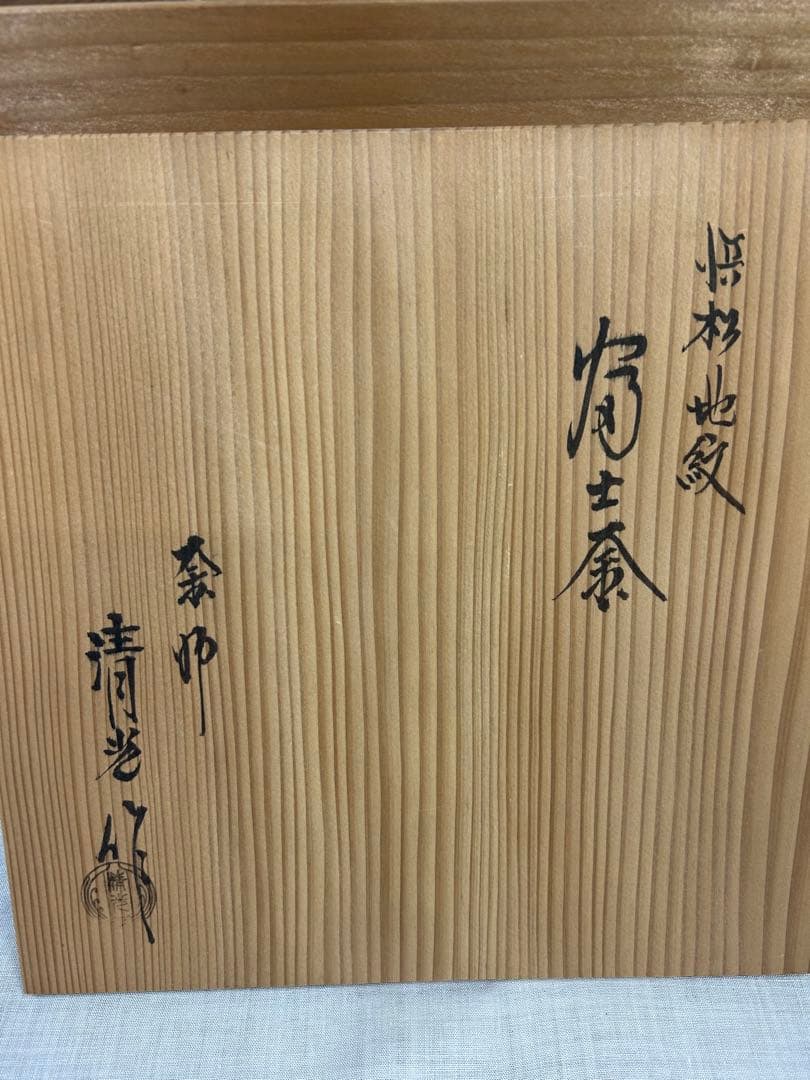 浜松地紋
富士釜
釜師
清光作